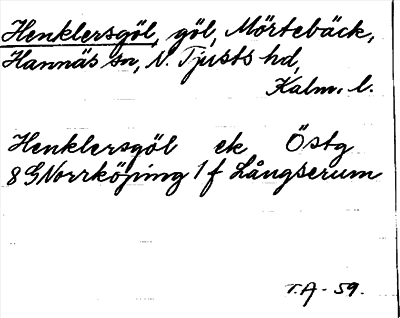 Henklersgöl, göl, Mörtebäck,
Hannäs sn, N. Tjusts hd,
Kalm. l.
Henklersgöl ek Östg
8G Norrköping 1 f Långserum
T.A - 59.